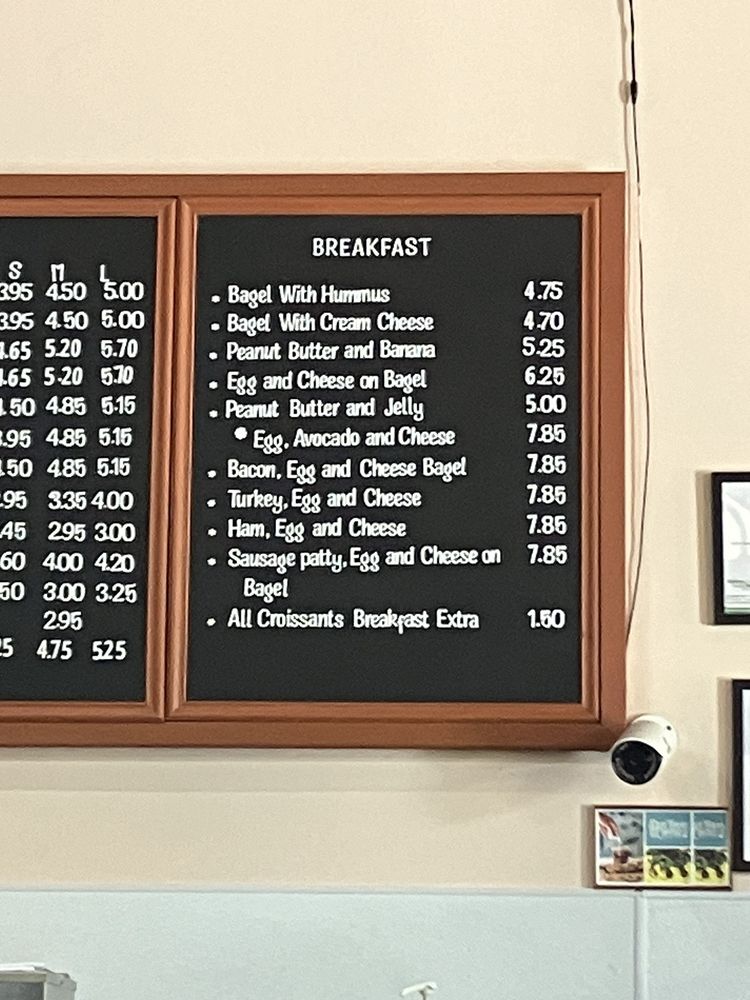 S M L
3.95 4.50 5.00
3.95 4.50 5.00
4.65 5.20 5.70
4.65 5.20 5.70
4.50 4.85 5.15
3.95 4.85 5.15
4.50 4.85 5.15
.95 3.35 4.00
.45 2.95 3.00
.60 4.00 4.20
.50 3.00 3.25
2.95
5 4.75 5.25
BREAKFAST
• Bagel With Hummus 4.75
• Bagel With Cream Cheese 4.70
• Peanut Butter and Banana 5.25
• Egg and Cheese on Bagel 6.25
• Peanut Butter and Jelly 5.00
* Egg, Avocado and Cheese 7.85
• Bacon, Egg and Cheese Bagel 7.85
• Turkey, Egg and Cheese 7.85
• Ham, Egg and Cheese 7.85
• Sausage patty, Egg and Cheese on 7.85
Bagel
• All Croissants Breakfast Extra 1.50